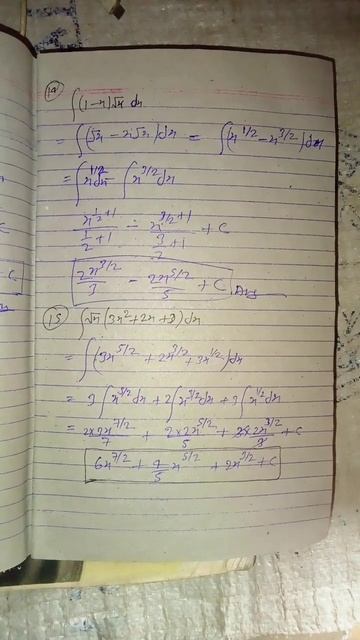 14
∫(1-x)√x dx
= ∫(√x - x√x)dx = ∫(x^1/2 - x^3/2)dx
= ∫x^1/2 dx - ∫x^3/2 dx
x^(1/2+1)/(1/2+1) - x^(3/2+1)/(3/2+1) + C
2x^3/2/3 - 2x^5/2/5 + C Ans
15 ∫√x(3x²+2x+3)dx
= ∫(3x^5/2 + 2x^3/2 + 3x^1/2)dx
= 3∫x^5/2 dx + 2∫x^3/2 dx + 3∫x^1/2 dx
= 2×3x^7/2/7 + 2×2x^5/2/5 + 3×2x^3/2/3 + C
6x^7/2 + 4/5 x^5/2 + 2x^3/2 + C